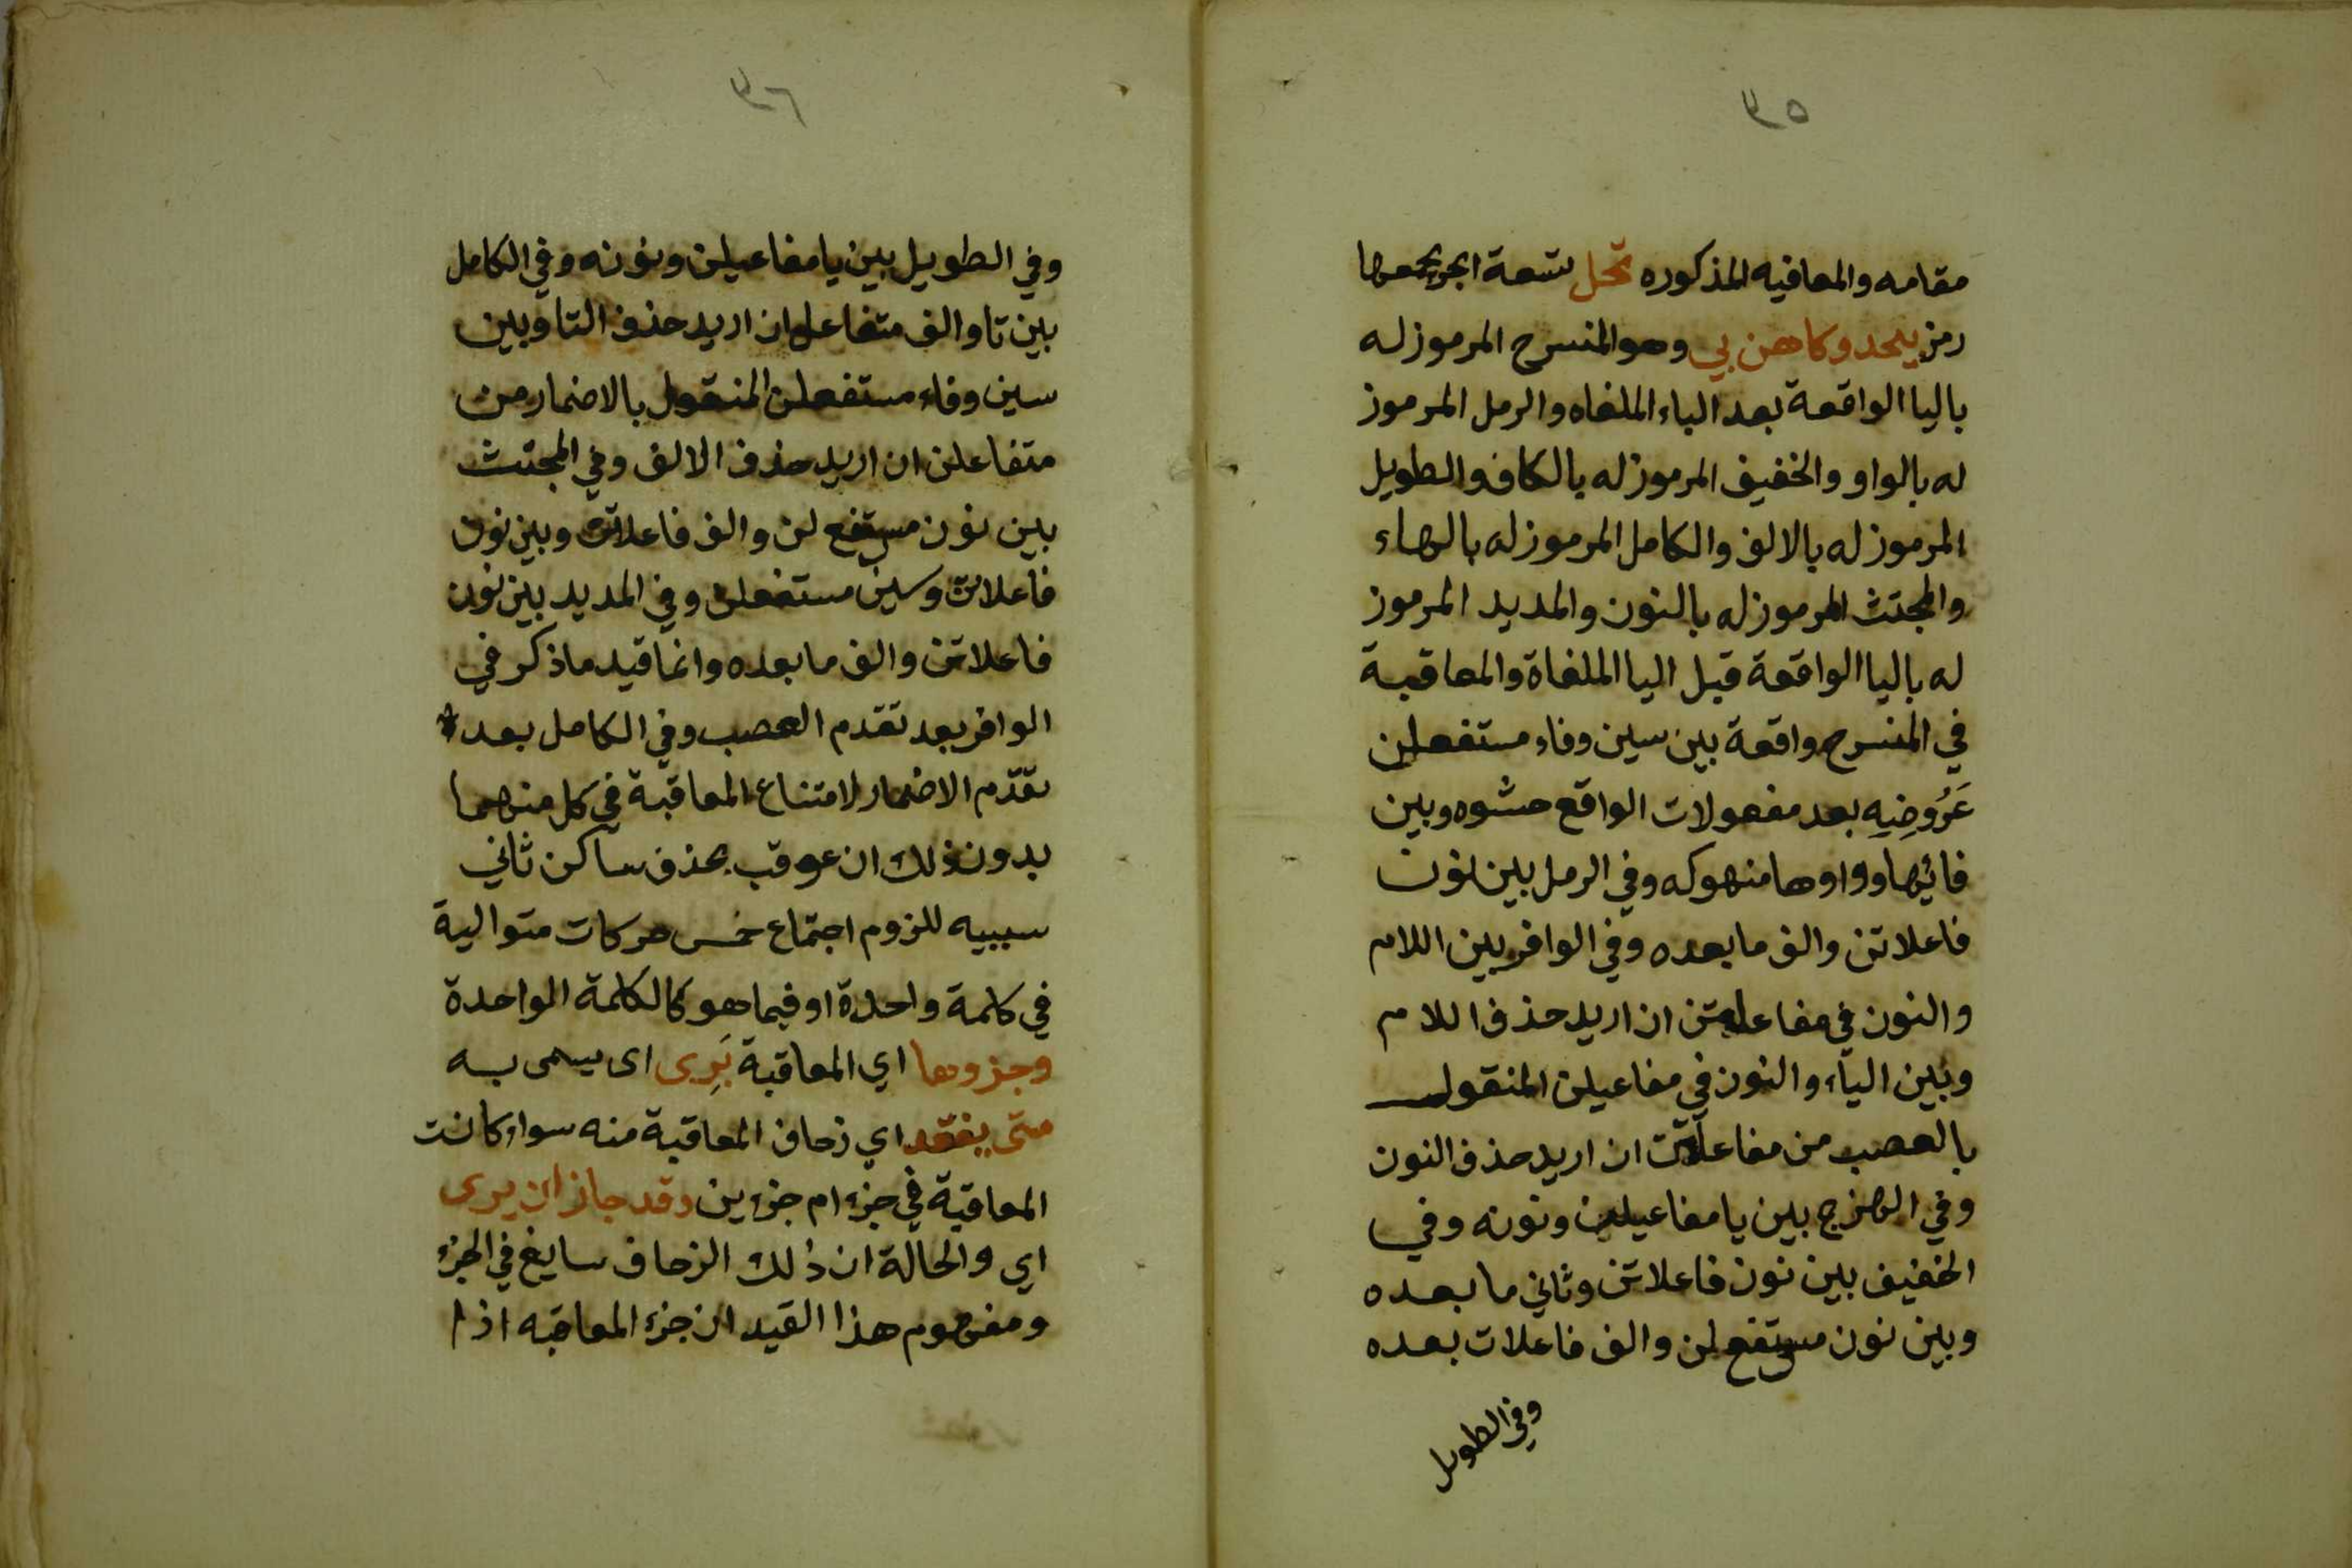 ٣٥
مقامه والمعاقبه المذكوره تحل تسعة ابحر يجمعها
رمز يحدو كاهن بي وهو المنسرح المرموز له
باليا الواقعة بعد الباء الملغاه والرمل المرموز
له بالواو والخفيف المرموز له بالكاف والطويل
المرموز له بالالف والكامل المرموز له بالهاء
والمجتث المرموز له بالنون والمديد المرموز
له باليا الواقعة قبل اليا الملغاة والمعاقبة
في المنسرح واقعة بين سين وفاء مستفعلن
عَرُوضِيِه بعد مفعولات الواقع حشوه وبين
فائيها وواوها منهوكه وفي الرمل بين نون
فاعلاتن والف ما بعده وفي الوافر بين اللام
والنون في مفاعلتن ان اريد حذف اللام
وبين الياء والنون في مفاعيلن المنقول
بالعصب من مفاعلتن ان اريد حذف النون
وفي الهزج بين يا مفاعيلن ونونه وفي
الخفيف بين نون فاعلاتن وثاني ما بعده
وبين نون مستفع لن والف فاعلات بعده
وفي الطويل
٣٦
وفي الطويل بين يا مفاعيلن ونونه وفي الكامل
بين تا والف متفاعلن ان اريد حذف التا وبين
سين وفاء مستفعلن المنقول بالاضمار من
متفاعلن ان اريد حذف الالف وفي المجتث
بين نون مستفع لن والف فاعلاتن وبين نون
فاعلاتن وسين مستفعلن وفي المديد بين نون
فاعلاتن والف ما بعده وانما قيد ما ذكر في
الوافر بعد تقدم العصب وفي الكامل بعد
تقدّم الاضمار لامتناع المعاقبة في كل منهما
بدون ذلك ان عوقب بحذف ساكن ثاني
سببيه للزوم اجتماع خمس حركات متوالية
في كلمة واحدة او فيما هو كالكلمة الواحدة
وجزوها اي المعاقبة بَرِى اى يسمى به
متى يفقد اي زحاف المعاقبة منه سواء كانت
المعاقبة في جزء ام جزءين وقد جاز ان يرى
اي والحالة ان ذلك الزحاف سايغ في الجزء
ومفهوم هذا القيد ان جزء المعاقبه اذا